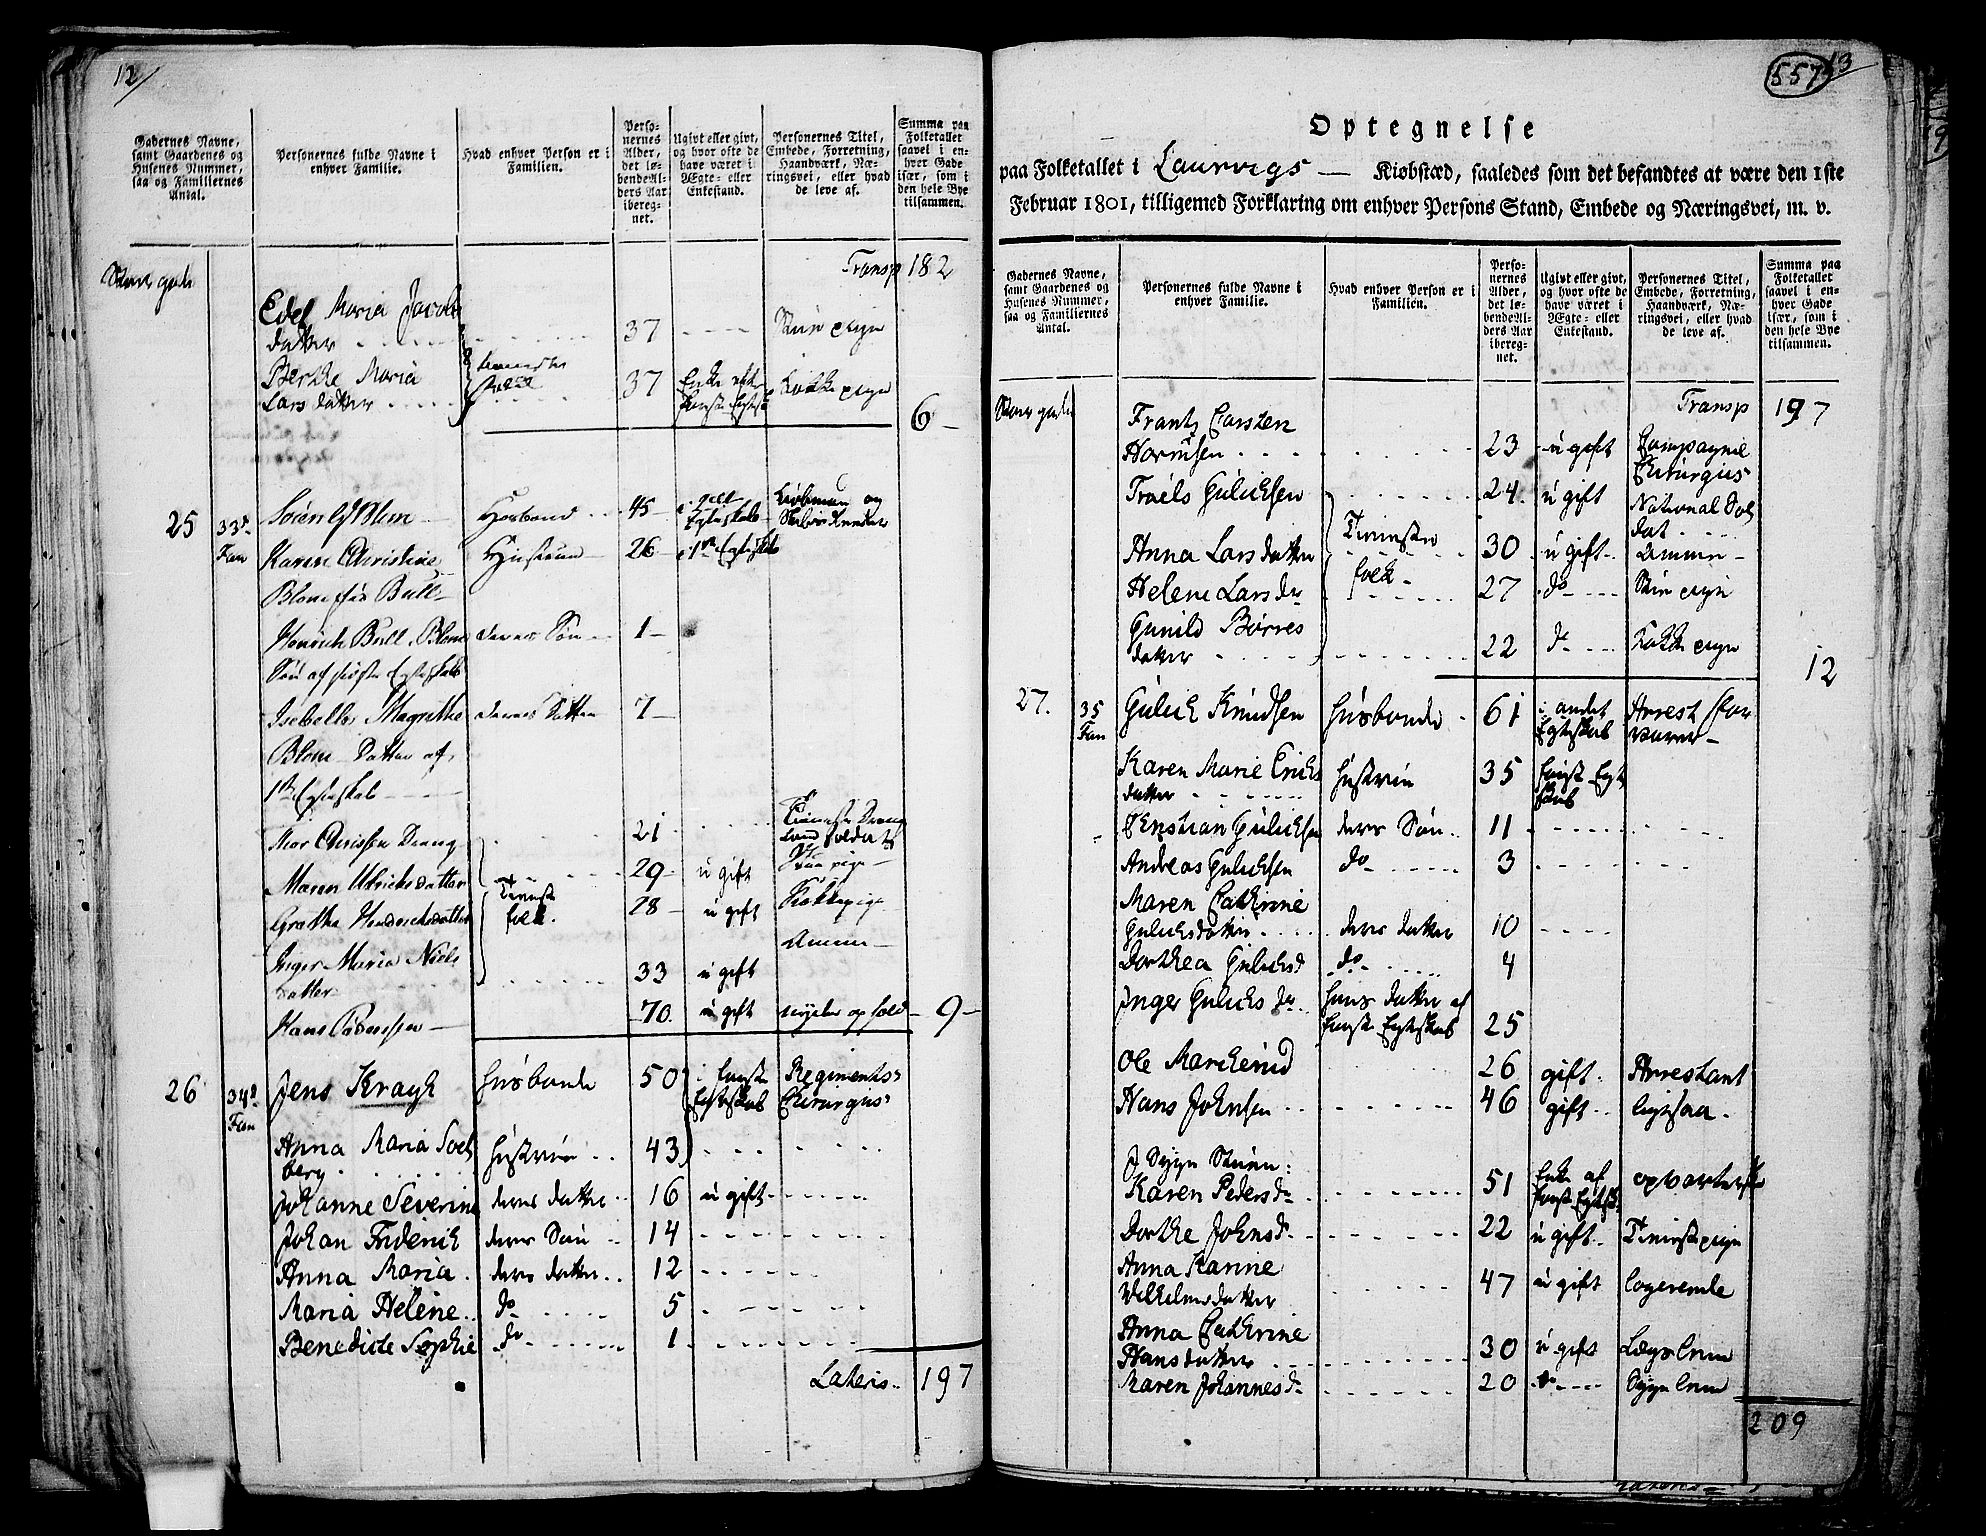 12/
Gadernes Navne, samt Gaardenes og Husenes Nummer, saa og Familiernes Antal.
Personernes fulde Navne i enhver Familie.
Hvad enhver Person er i Familien.
Personernes Alder, det løbende Alders Aar iberegnet.
Ugivt eller givt, og hvor ofte de have været i Ægte- eller Enkestand.
Personernes Titel, Embede, Forretning, Haandværk, Næringsvei, eller hvad de leve af.
Summa paa Folketallet saavel i enhver Gade især, som i den hele Bye tilsammen.
Transp 182
Edel Maria Jacobs
datter 37
Berthe Maria
Lars datter 37 Kokke pige
6
25 33te Søren Blom Hosbond 45
Fam Karen Christine Hustrue 26 i 1te Egteskab
Blom Bull
Henrich Bull Blom deres Søn 1
Søn af sidste Egteskab
Isebella Magrethe deres Datter 7
Blom Datter af
1te Egteskab
21
Maren Ulrichsdatter 29 ugift
Grethe 28 ugift Kokkepige
folk. Amme
Inger Maria Niels 33 ugift
datter
Hans Pedersen 70 ugift 9
26 34de Jens Kragh Husbonde 50 i første Regiments
Fam Egteskab Chirurgus
Anna Maria Soel Hustrue 43
berg
Johanne Severine deres datter 16 ugift
Johan Friderich deres Søn 14
Anna Maria deres datter 12
Maria Helene do 5
Benedicte Sophie do 1
Lateris 197
557 13
Optegnelse
paa Folketallet i Laurvigs Kiøbstæd, saaledes som det befandtes at være den 1ste
Februar 1801, tilligemed Forklaring om enhver Persons Stand, Embede og Næringsvei, m. v.
Gadernes Navne, samt Gaardenes og Husenes Nummer, saa og Familiernes Antal.
Personernes fulde Navne i enhver Familie.
Hvad enhver Person er i Familien.
Personernes Alder, det løbende Alders Aar iberegnet.
Ugivt eller givt, og hvor ofte de have været i Ægte- eller Enkestand.
Personernes Titel, Embede, Forretning, Haandværk, Næringsvei, eller hvad de leve af.
Summa paa Folketallet saavel i enhver Gade især, som i den hele Bye tilsammen.
Transp 197
Frantz Carsten
23 ugift Compagnie
Chirurgus
Troels Gulichsen 24 ugift National Sol
dat
Anna Lars datter Tieniste 30 ugift Amme
Helene Lars dr folk 27 do
Gunild Børres
datter 22 do Kokke pige
12
27. 35 Gulich Knudsen Husbonde 61 i andet Arrest for
Fam Egteskab varer
Karen Marie Erichs Hustrue 35 første Egte
datter skab
Christian Gulichsen deres Søn 11
Andreas Gulichsen do 3
Maren Cathrine
Gulichsdatter deres datter 10
Dorthea Gulichsd do 4
Inger Gulichs dr hans datter af
første Egteskab 25
Ole 26 gift Arrestant
Hans Johnsen 46 gift ligesaa
I Syge Stuen:
Karen Peders dr 51 Enke af opvarterske
første Egtesk
Dorthe Johnsd 22 ugift Tienistepige
Anna Karine
Wilhelms datter 47 ugift logerende
Anna Cathrine
Hans datter 30 ugift
Maren Johannesd 20 do
209